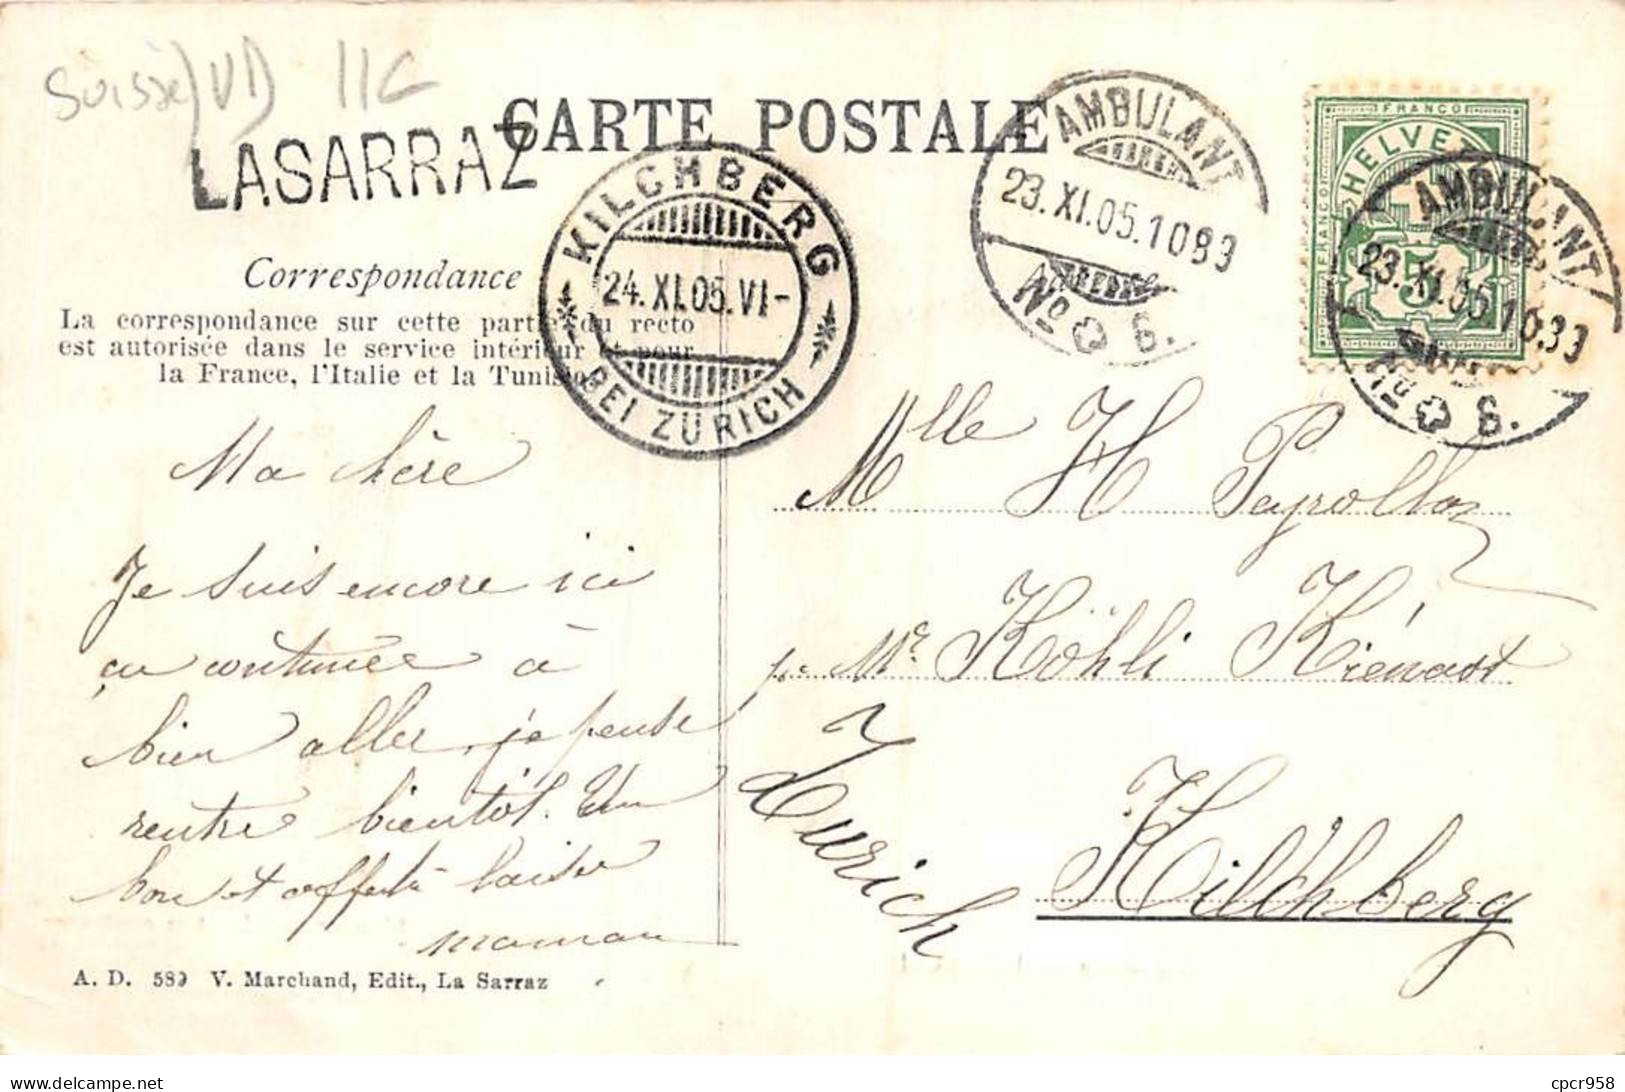 Suisse) VD 11C
CARTE POSTALE
LASARRAZ
KILCHBERG
24.XI.05.VI-
BEI ZÜRICH
AMBULANT
23.XI.05.1083
No 6.
FRANCO
FRANCO
HELVETIA
5
AMBULANT
23.XI.05.1083
No 6.
Correspondance
La correspondance sur cette partie du recto
est autorisée dans le service intérieur et pour
la France, l'Italie et la Tunisie.
Ma chère
Je suis encore ici
ça continue à
bien aller, je pense
rentre bientôt. Un
bon et affectu baiser
maman
Mlle H Peyrollaz
p. Mr. Köhli Kienast
Zurich
Kilchberg
A. D. 589 V. Marchand, Edit., La Sarraz
cpcr958